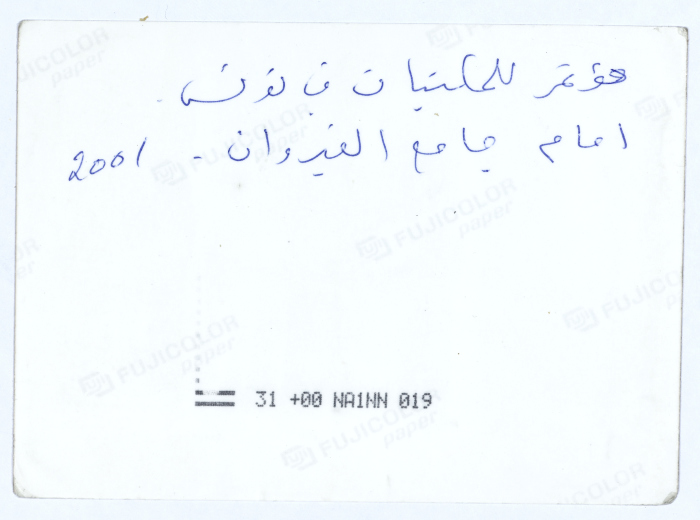 مؤتمر للمكتبات في تونس
امام جامع القيروان - 2001
31 +00 NA1NN 019
FUJICOLOR
paper